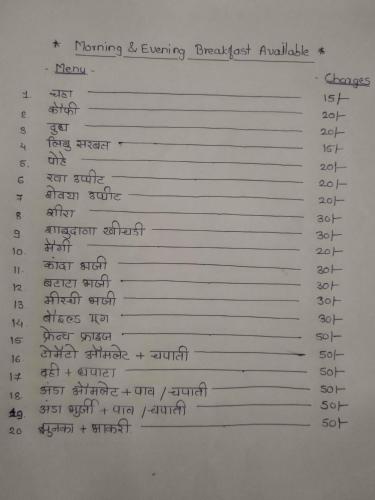 * Morning & Evening Breakfast Available *
- Menu -
- Charges
1. चहा 15/-
2 कॉफी 20/-
3 दुध 20/-
4 लिंबु सरबत 15/-
5. पोहे 20/-
6 रवा उप्पीट 20/-
7 शेवया उप्पीट 20/-
8 शीरा 30/-
9 शाबुदाणा खीचडी 30/-
10. मॅगी 20/-
11. कांदा भजी 30/-
12 बटाटा भजी 30/-
13. मीरची भजी 30/-
14. बॉईल्ड एग 30/-
15 फ्रेन्च फ्राइज 50/-
16 टोमॅटो ऑमलेट + चपाती 50/-
17 दही + चपाटा 50/-
18. अंडा ऑमलेट + पाव / चपाती 50/-
19. अंडा भुर्जी + पाव / चपाती 50/-
20 झुनका + भाकरी 50/-